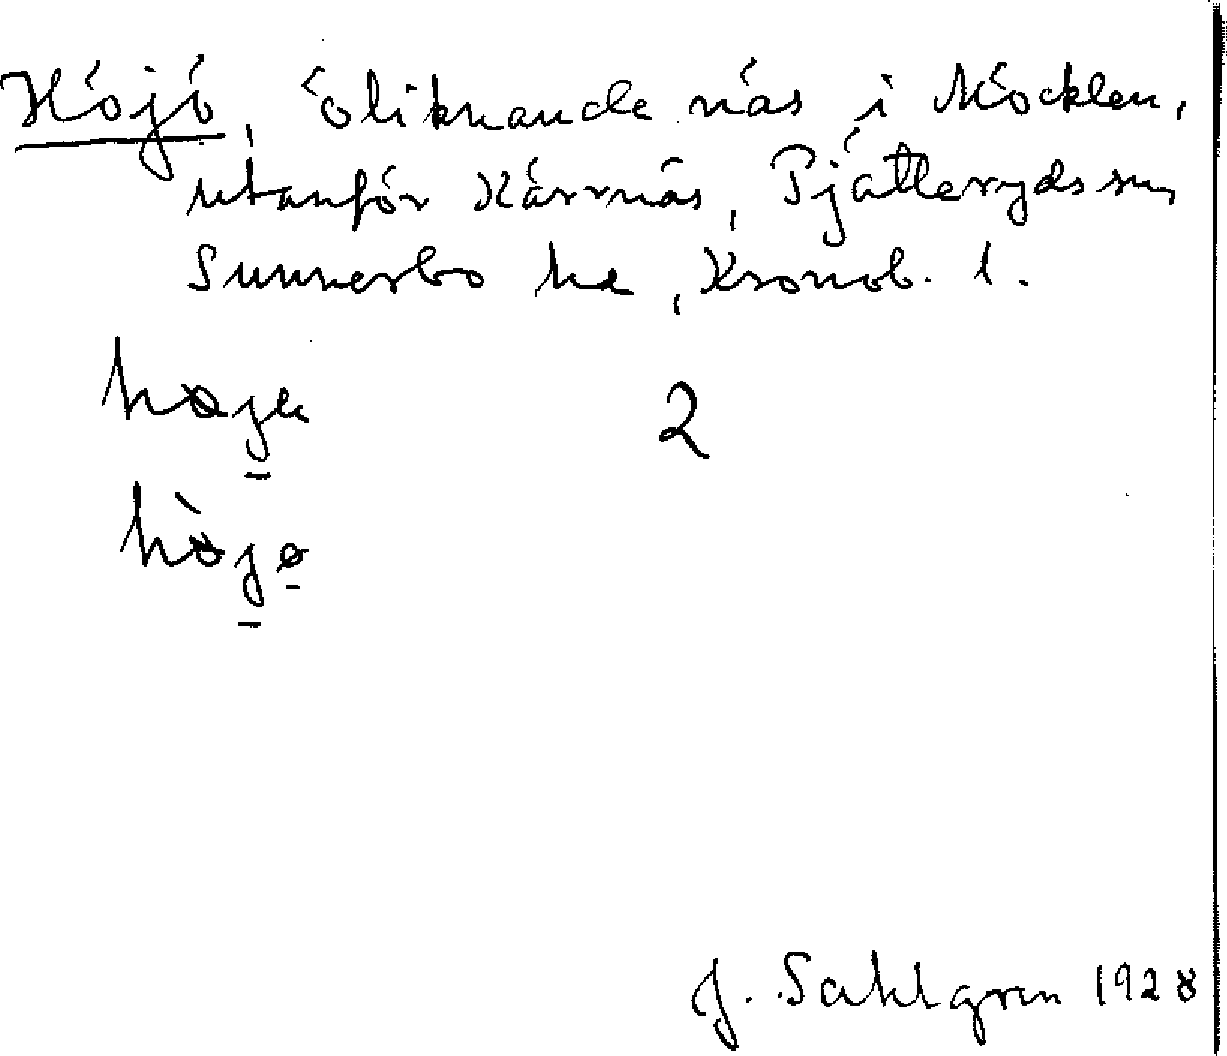 Höjö, öliknande näs i Möckeln,
utanför Kärrnäs, Pjätteryds sn,
Sunnerbo hd, Kronob. l.
2
J. Sahlgren 1928